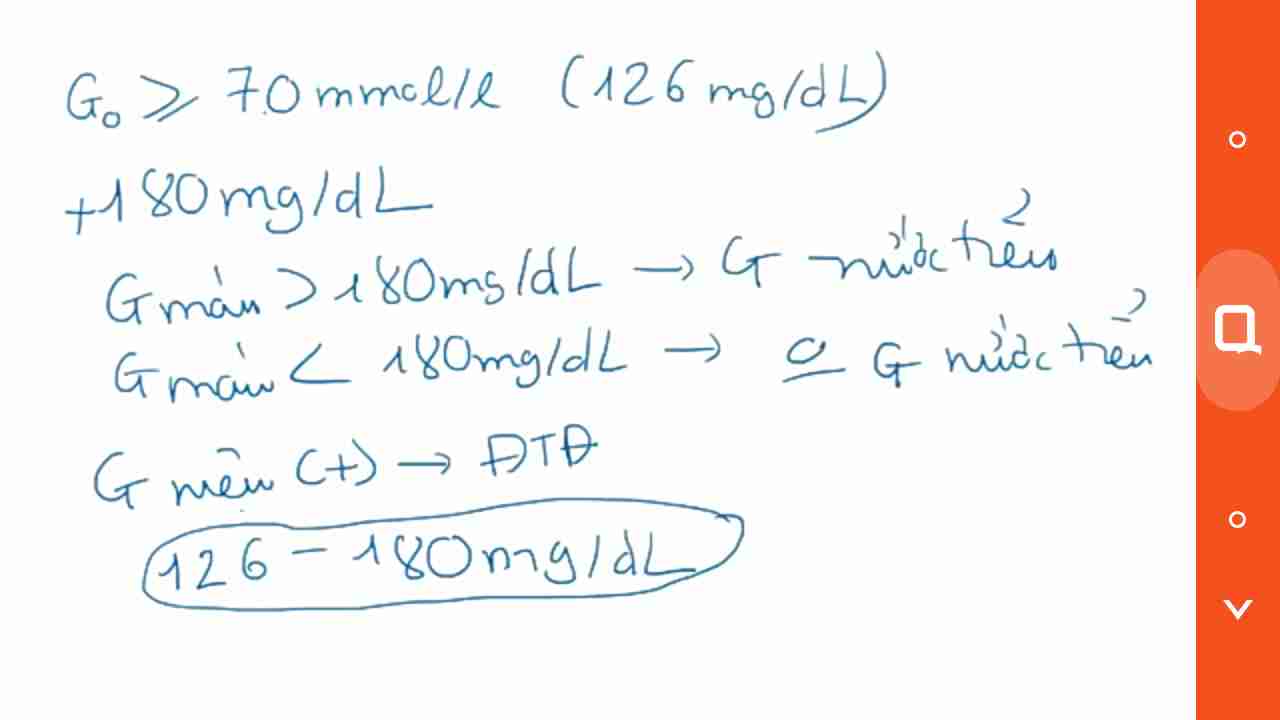 G₀ ≥ 7.0 mmol/l (126 mg/dL)
+180 mg/dL
G máu > 180mg/dL → G nước tiểu
G máu < 180mg/dL → 0 G nước tiểu
G niệu (+) → ĐTĐ
126 - 180mg/dL